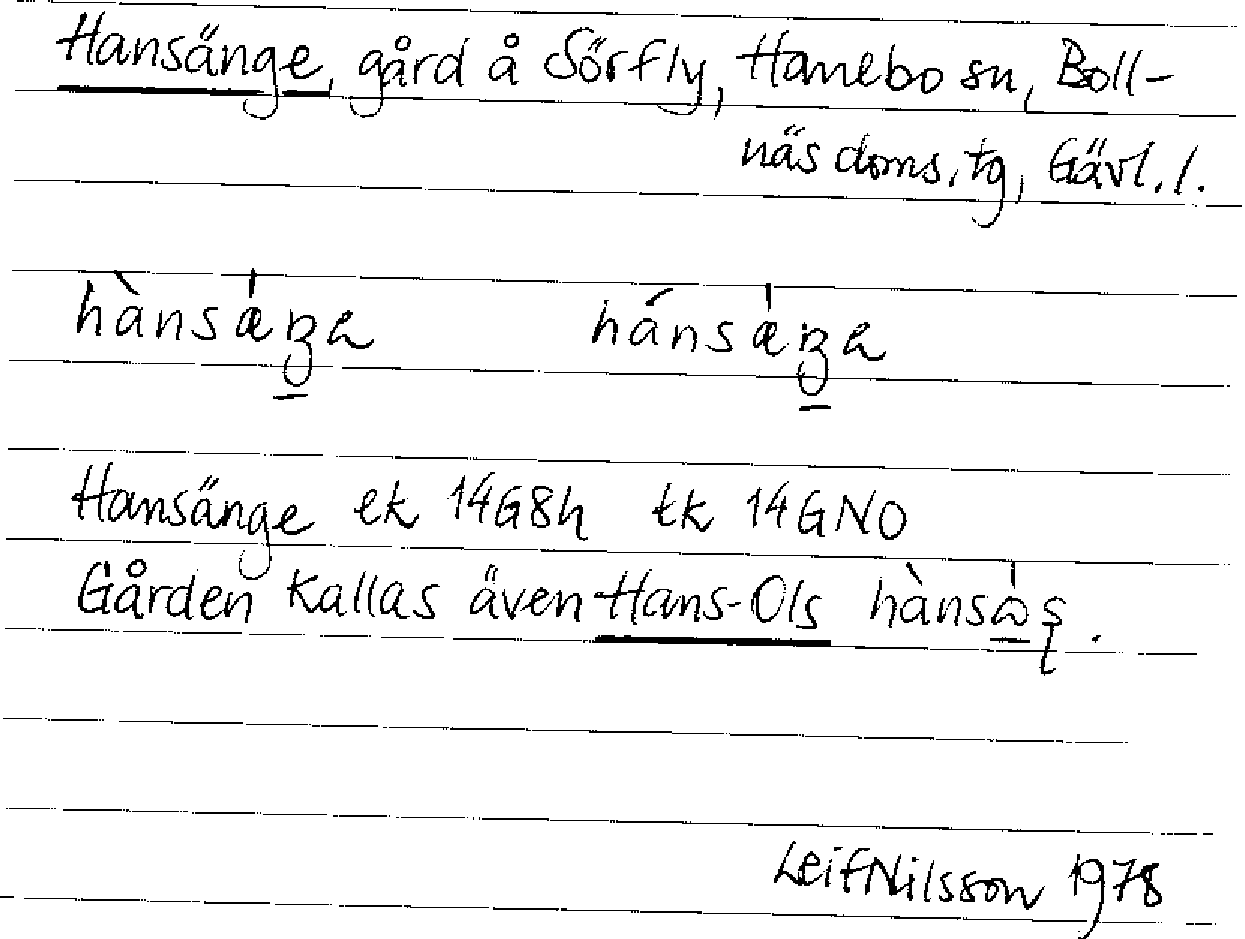 Hansänge, gård å Sörfly, Hanebo sn, Boll-
näs doms. tg, Gävl. l.
hànsǽŋa hánsǽŋa
Hansänge ek 14G8h tk 14GNO
Gården kallas även Hans-Ols
Leif Nilsson 1978